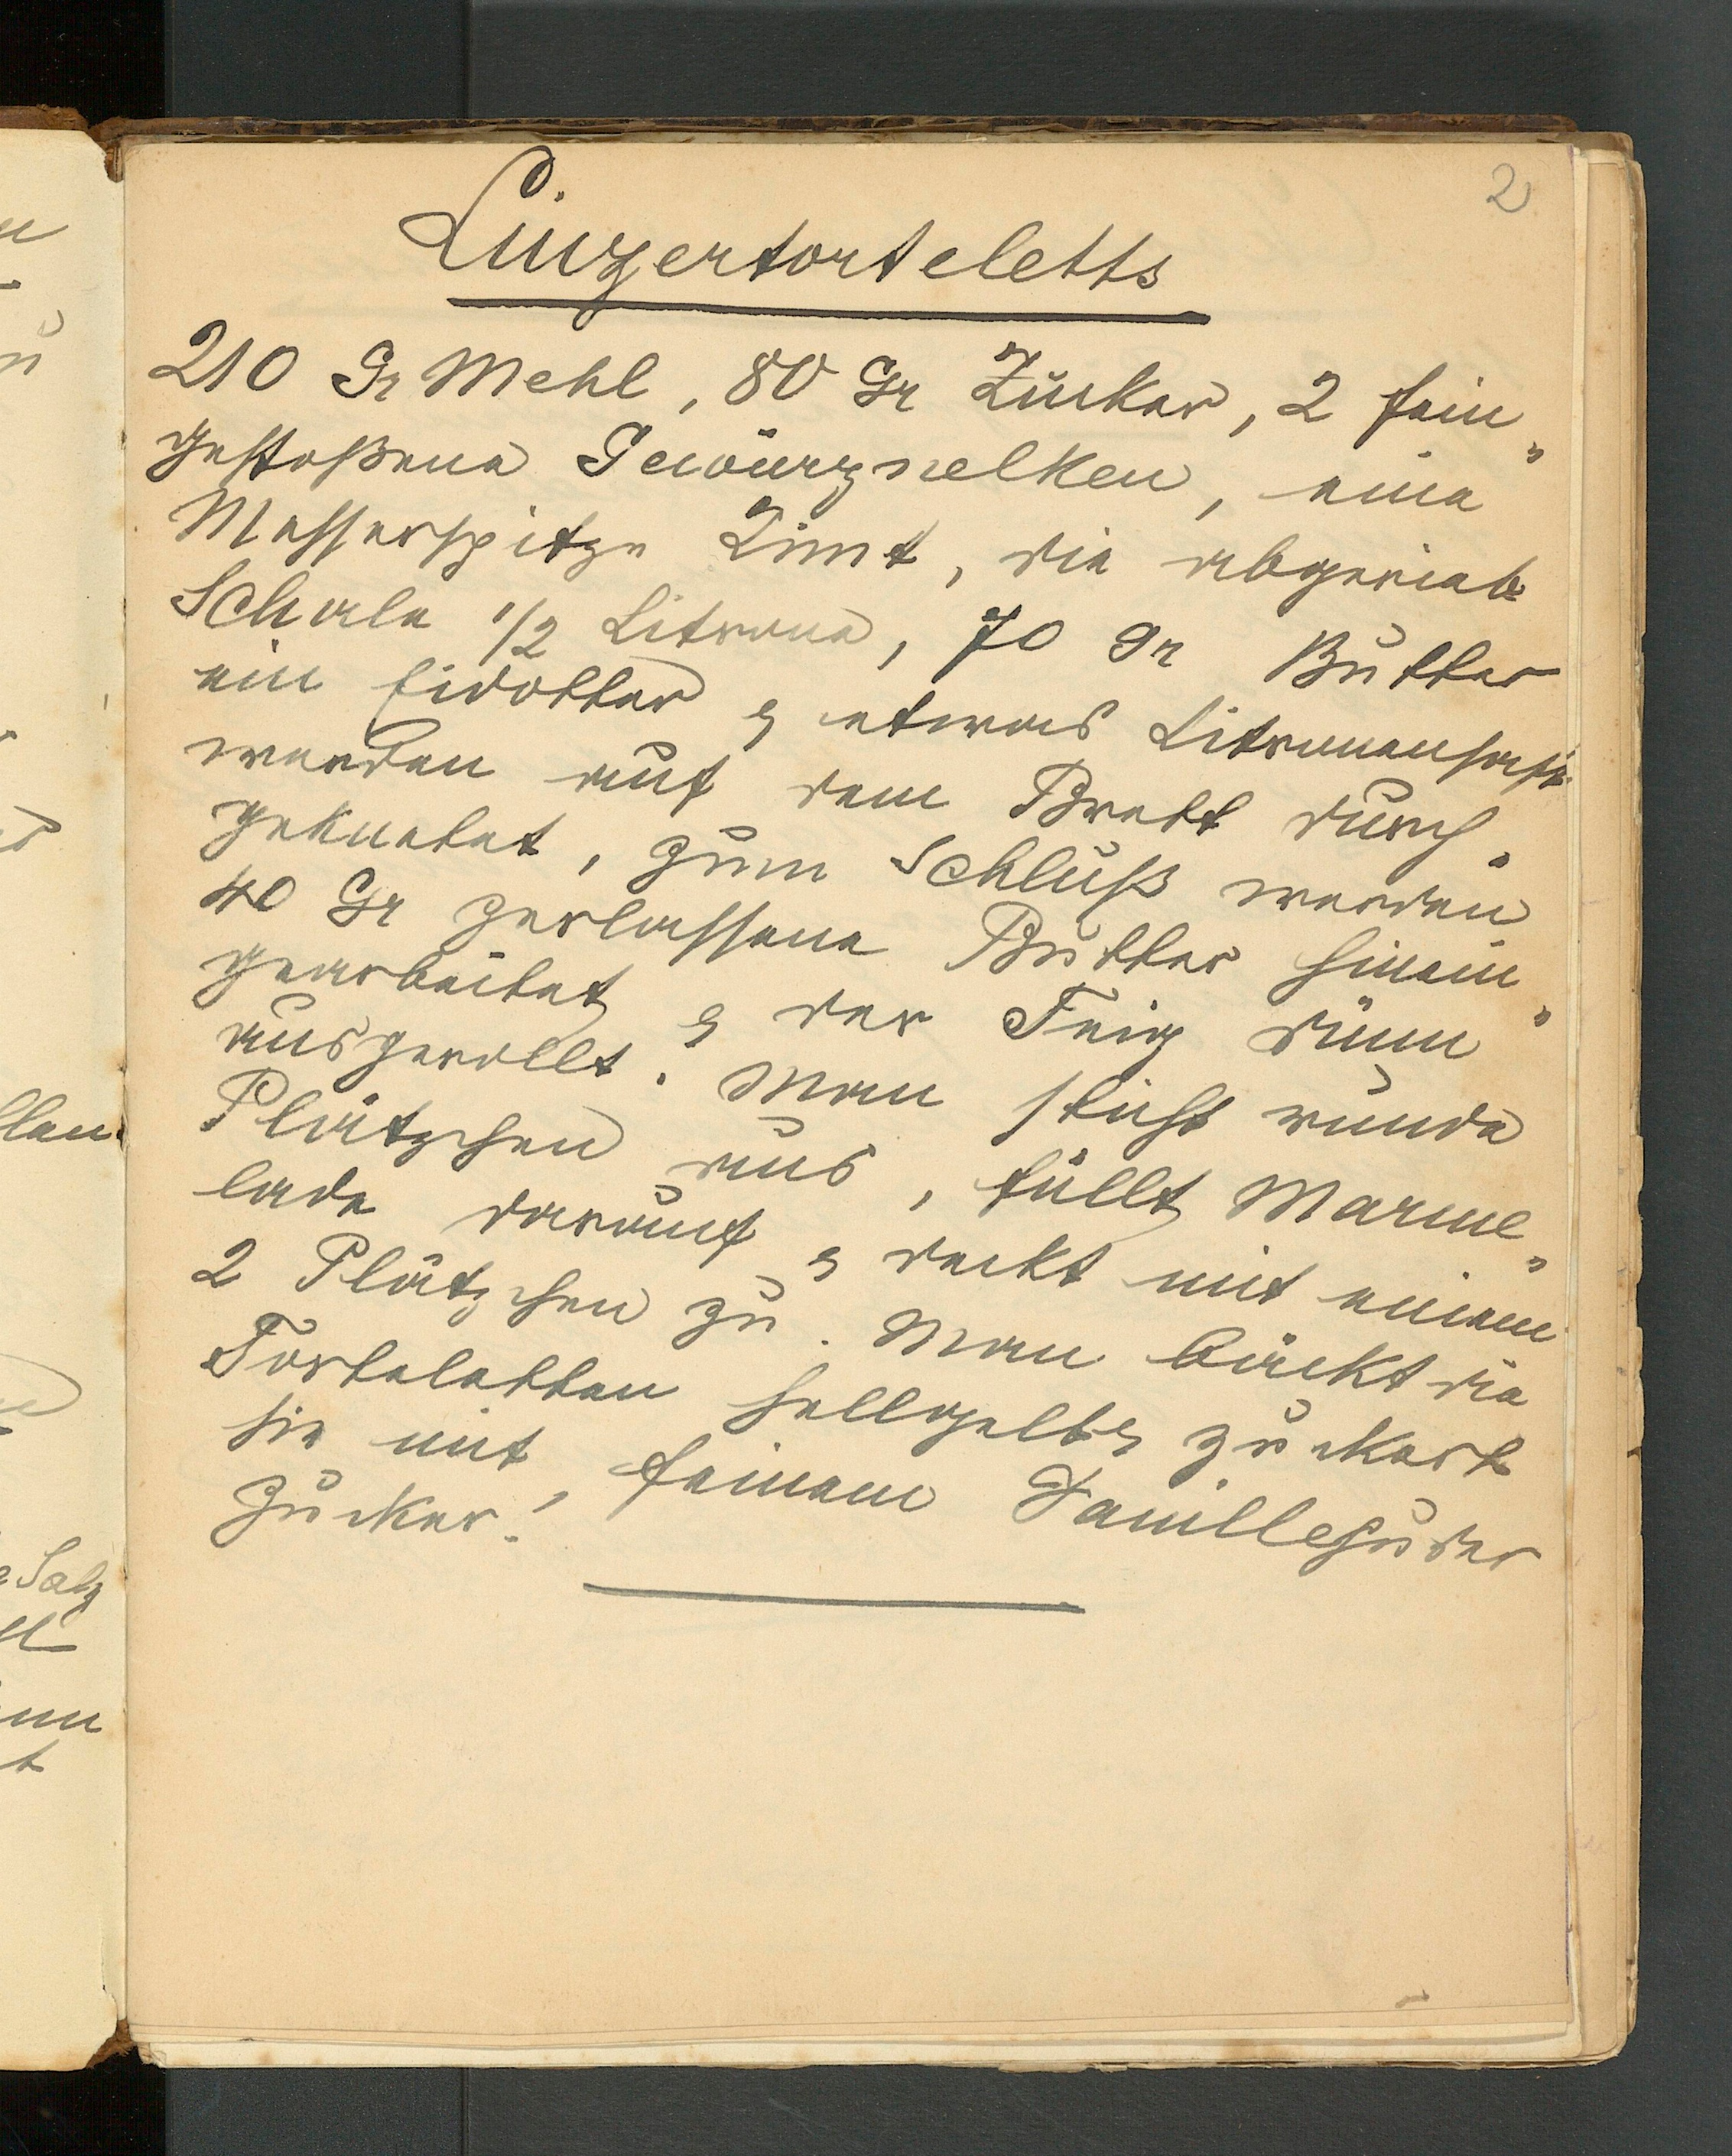 2
Linzertorteletts
210 Gr Mehl, 80 Gr Zucker, 2 fein„
gestoßene Gewürznelken, eine
Messerspitze Zimt, die abgerieb.
Schale 1/2 Citrone, 70 gr Butter
ein Eidotter & etwas Citronensaft
werden auf dem Brett durch„
geknetet, zum Schluß werden
40 Gr zerlassene Butter hinein„
gearbeitet & der Teig dünn
ausgerollt. Man sticht runde
Plätzchen aus, füllt Marme„
lade darauf & deckt mit einem
2 Plätzchen zu. Man bäckt die
Torteletten hellgelb & zuckert
sie mit, feinem Vanillepuder
zucker!
llen.
Salz